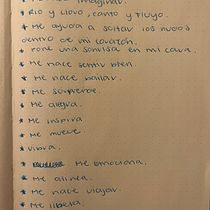 * Me hace imaginar.
* Río y lloro, canto y fluyo.
* Me ayuda a soltar los nudos
dentro de mi corazón.
* Pone una sonrisa en mi cara.
* Me hace sentir bien.
* Me hace bailar.
* Me sorprende.
* Me alegra.
* Me inspira
* Me mueve
* Vibra.
* Me emociona.
* Me alinea.
* Me hace viajar.
* Me libera